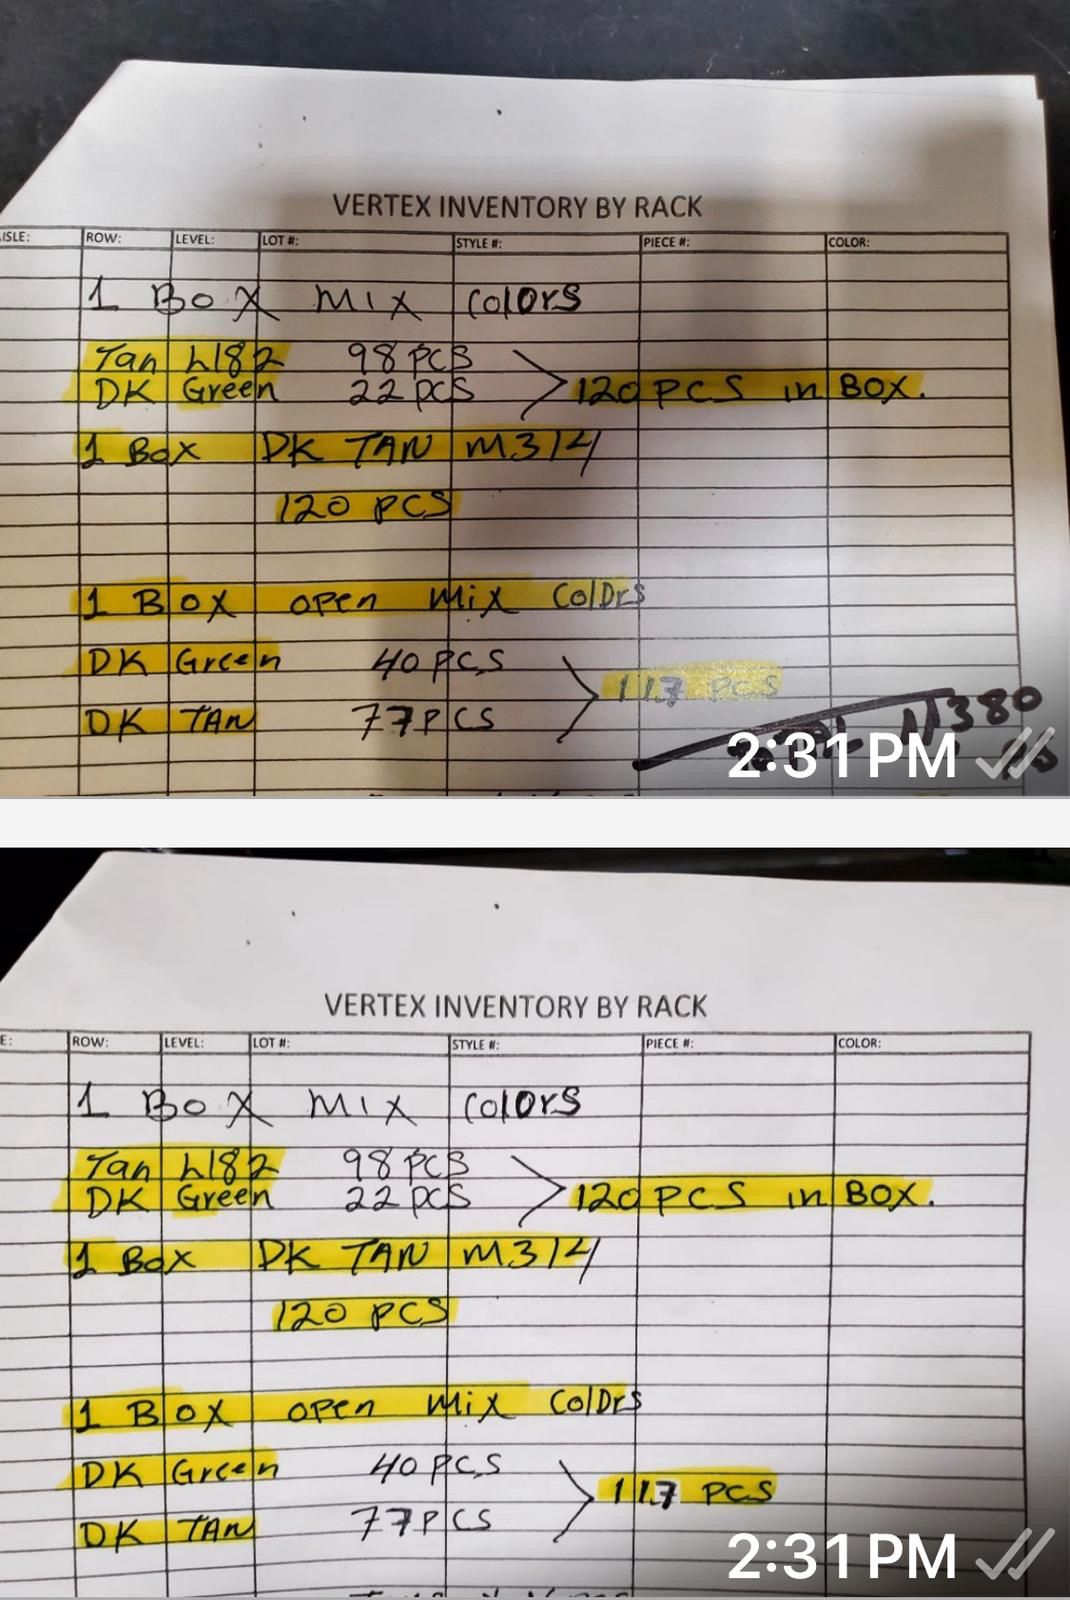 VERTEX INVENTORY BY RACK
ISLE: ROW: LEVEL: LOT #: STYLE #: PIECE #: COLOR:
1 Box Mix Colors
Tan L182 98 PCS
DK Green 22 PCS
120 PCS in BOX.
1 Box DK TAN M314
120 PCS
1 BOX open Mix Colors
DK Green 40 PCS
117 PCS
DK TAN 77 PCS
11,380
2:31 PM
VERTEX INVENTORY BY RACK
E: ROW: LEVEL: LOT #: STYLE #: PIECE #: COLOR:
1 Box Mix Colors
Tan L182 98 PCS
DK Green 22 PCS
120 PCS in BOX.
1 Box DK TAN M314
120 PCS
1 BOX open Mix Colors
DK Green 40 PCS
117 PCS
DK TAN 77 PCS
2:31 PM